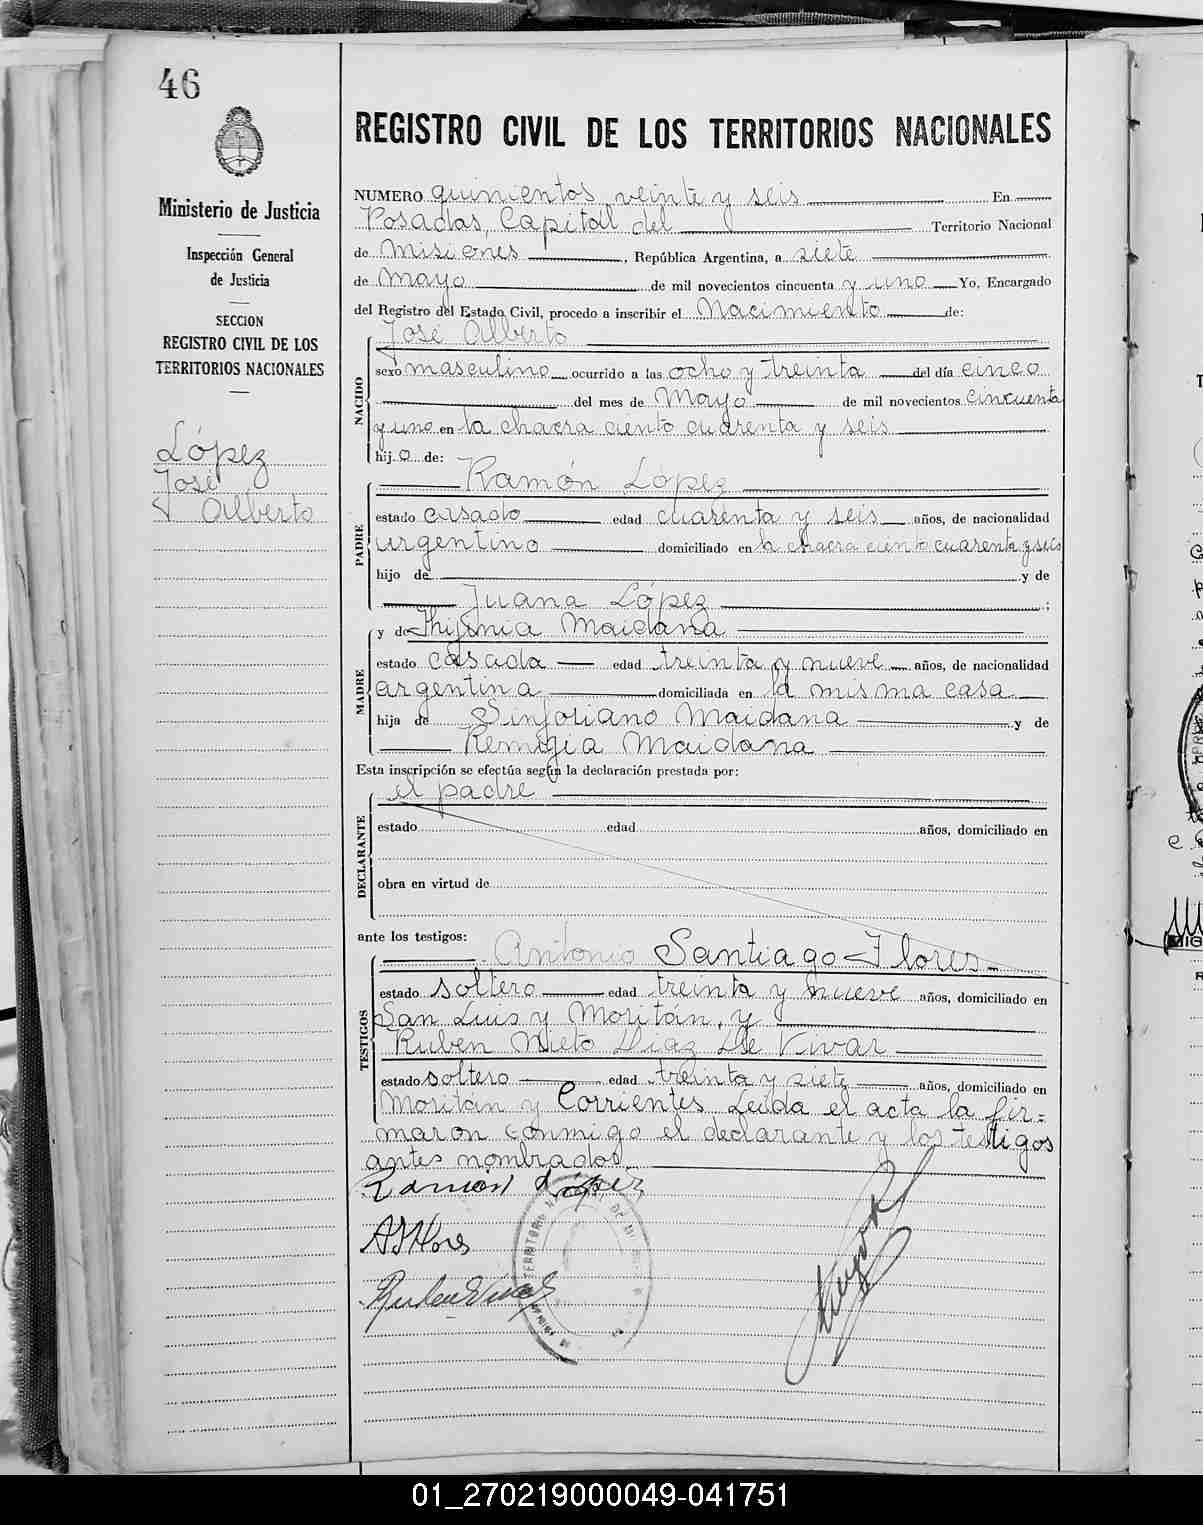 46
REGISTRO CIVIL DE LOS TERRITORIOS NACIONALES
Ministerio de Justicia
Inspección General
de Justicia
SECCION
REGISTRO CIVIL DE LOS
TERRITORIOS NACIONALES
López
José
Alberto
NUMERO quinientos veinte y seis En
Posadas, Capital del Territorio Nacional
de Misiones, República Argentina, a siete
de Mayo de mil novecientos cincuenta y uno Yo, Encargado
del Registro del Estado Civil, procedo a inscribir el Nacimiento de:
José Alberto
NACIDO
sexo masculino ocurrido a las ocho y treinta del día cinco
del mes de Mayo de mil novecientos cincuenta
y uno en la chacra ciento cuarenta y seis
hijo de:
Ramón López
PADRE
estado casado edad cuarenta y seis años, de nacionalidad
argentino domiciliado en la chacra ciento cuarenta y seis
hijo de y de
Juana López ;
y de Ifijenia Maidana
MADRE
estado casada edad treinta y nueve años, de nacionalidad
argentina domiciliada en la misma casa
hija de Sinforiano Maidana y de
Remigia Maidana
Esta inscripción se efectúa según la declaración prestada por:
el padre
DECLARANTE
estado edad años, domiciliado en
obra en virtud de
ante los testigos:
Antonio Santiago Flores
TESTIGOS
estado soltero edad treinta y nueve años, domiciliado en
San Luis y Moritán, y
Ruben Nieto Diaz De Vivar
estado soltero edad treinta y siete años, domiciliado en
Moritán y Corrientes. Leída el acta la fir=
maron conmigo el declarante y los testigos
antes nombrados.
Ramón López
ASFlores
Ruben Vivar
01_270219000049-041751